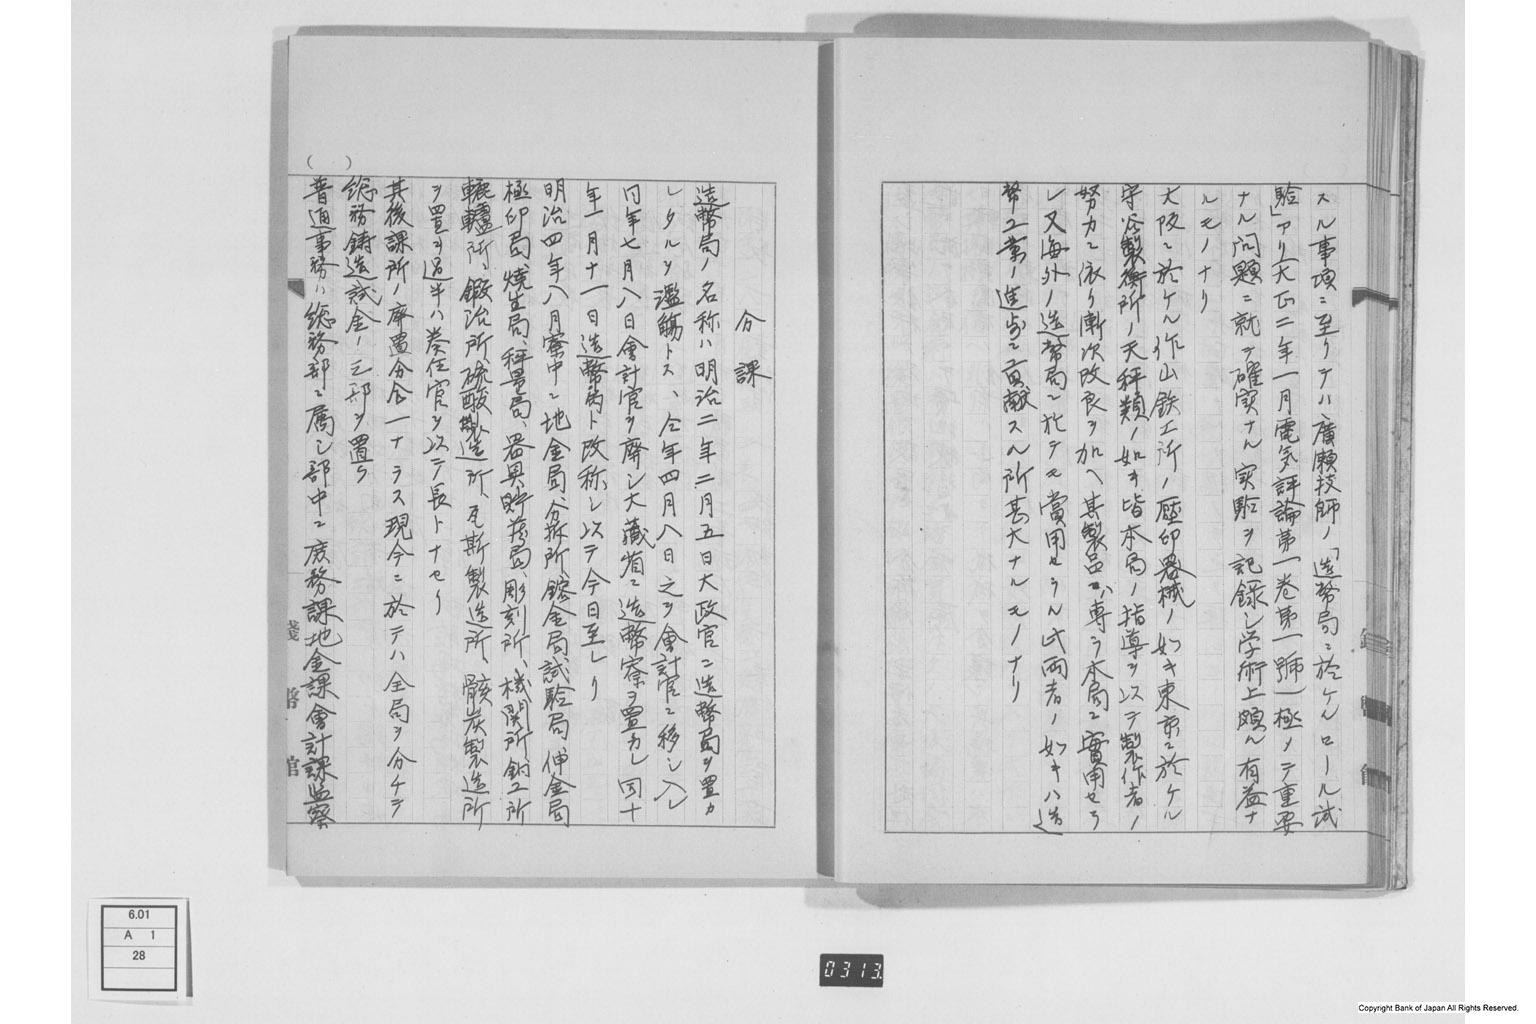 スル事項ニ至リテハ廣願技師ノ「造幣局ニ於ケルロール試
驗」アリ(大正二年一月電気評論第一巻第一號)極メテ重要
ナル問題ニ就テ確実ナル実驗ヲ記録シ学術上頗ル有益ナ
ルモノナリ
大阪ニ於ケル作山鉄工所ノ壓印器械ノ如キ東京ニ於ケル
守谷製衡所ノ天秤類ノ如キ皆本局ノ指導ヲ以テ製作者ノ
努力ニ依リ漸次改良ヲ加ヘ其製品ハ専ラ本局ニ實用セラ
レ又海外ノ造幣局ニ於テモ賞用セラル此両者ノ如キハ造
幣工業ノ進歩ニ貢献スル所甚大ナルモノナリ
分課
造幣局ノ名称ハ明治二年二月五日大政官ニ造幣局ヲ置カ
レタルヲ濫觴トス、仝年四月八日之ヲ會計官ニ移シ入レ
同年七月八日會計官ヲ廃シ大藏省ニ造幣寮ヲ置カレ同十
年一月十一日造幣局ト改称シ以テ今日至レリ
明治四年八月寮中ニ地金局、分析所、鎔金局、試驗局、伸金局
極印局、焼生局、秤量局、器具貯蓄局、彫刻所、機関所、銅工所
轆轤所、鍛冶所、硫酸製造所、瓦斯製造所、骸炭製造所
ヲ置ヲ過半ハ奏任官ヲ以テ長トナセリ
其後課所ノ廃置分合一ナラス現今ニ於テハ全局ヲ分チテ
総務鋳造試金ノ三部ヲ置ク
普通事務ハ総務部ニ属シ部中ニ庶務課地金課會計課監察
( )
錢幣館
6.01
A 1
28
0313.
Copyright Bank of Japan All Rights Reserved.